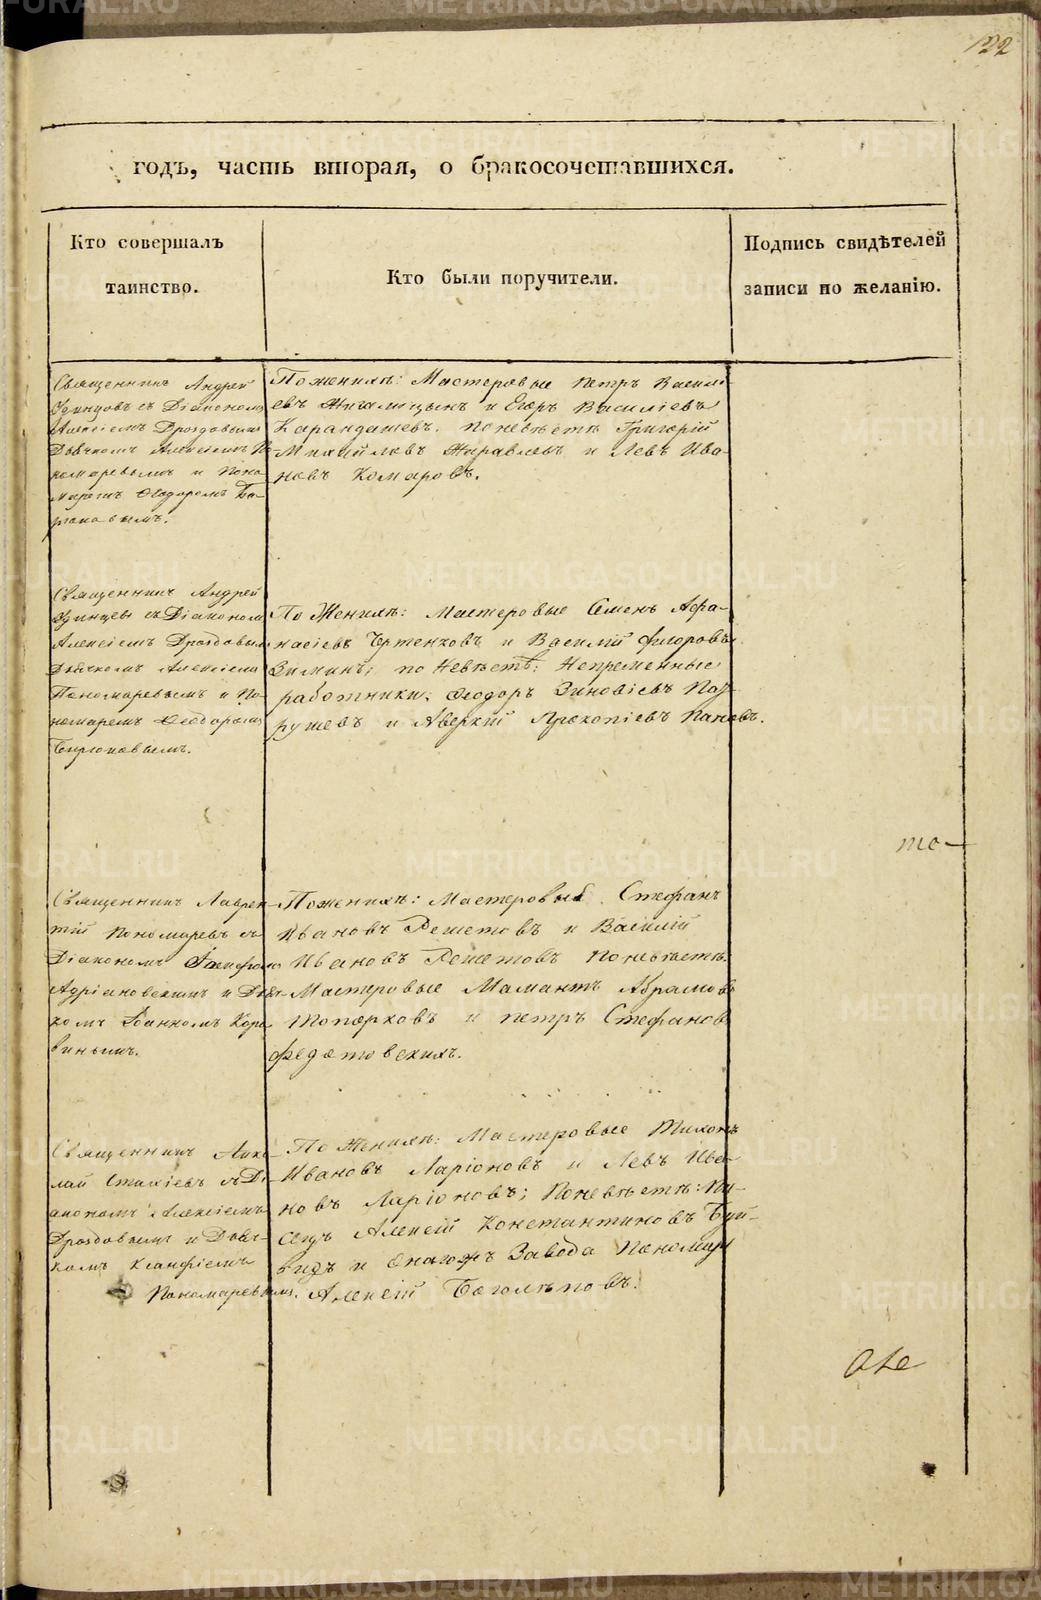 122
годъ, часть вторая, о бракосочетавшихся.
Кто совершалъ
таинство.
Кто были поручители.
Подпись свидѣтелей
записи по желанію.
Священникъ Андрей
Удинцовъ съ Діакономъ
Алексіемъ Дроздовымъ
Дьячкомъ Алексіемъ По-
номаревымъ и Поно-
маремъ Ѳеодоромъ Би-
рюковымъ.
По женихѣ: Мастеровые Петръ Василі-
евъ и Егоръ Василіевъ
Карандашевъ. По невѣстѣ Григорій
Михайловъ Журавлевъ и Левъ Ива-
новъ Комаровъ.
Священникъ Андрей
Удинцевъ съ Діакономъ
Алексіемъ Дроздовымъ
Дьячкомъ Алексіемъ
Пономаревымъ и По-
номаремъ Ѳеодоромъ
Бирюковымъ.
По Женихѣ: Мастеровые Семенъ Афа-
насіевъ Чертенковъ и Василій Флоровъ
Зиминъ; по Невѣстѣ: Непременные
работники: Ѳеодоръ Зиновіевъ
и Аверкій Прокопіевъ Пановъ.
Священникъ Лаврен-
тій Пономаревъ съ
Діакономъ
Адріановскимъ и Дьяч-
комъ Іоанномъ Коро-
винымъ.
По женихѣ: Мастеровые Стефанъ
Ивановъ Решетовъ и Василій
Ивановъ Решетовъ По невѣстѣ
Мастеровые Мамантъ Абрамовъ
Топорковъ и Петръ Стефановъ
Федотовскихъ.
те
Священникъ Нико-
лай Стахіевъ съ Ді-
акономъ Алексіемъ
Дроздовымъ и Дьяч-
комъ Ксанфіемъ
Пономаревымъ.
По Женихѣ: Мастеровые Тихонъ
Ивановъ Ларіоновъ и Левъ Ива-
новъ Ларіоновъ; По невѣстѣ: Пи-
сецъ Алексій Константиновъ
и Завода Пономарь
Алексій Боголѣповъ.